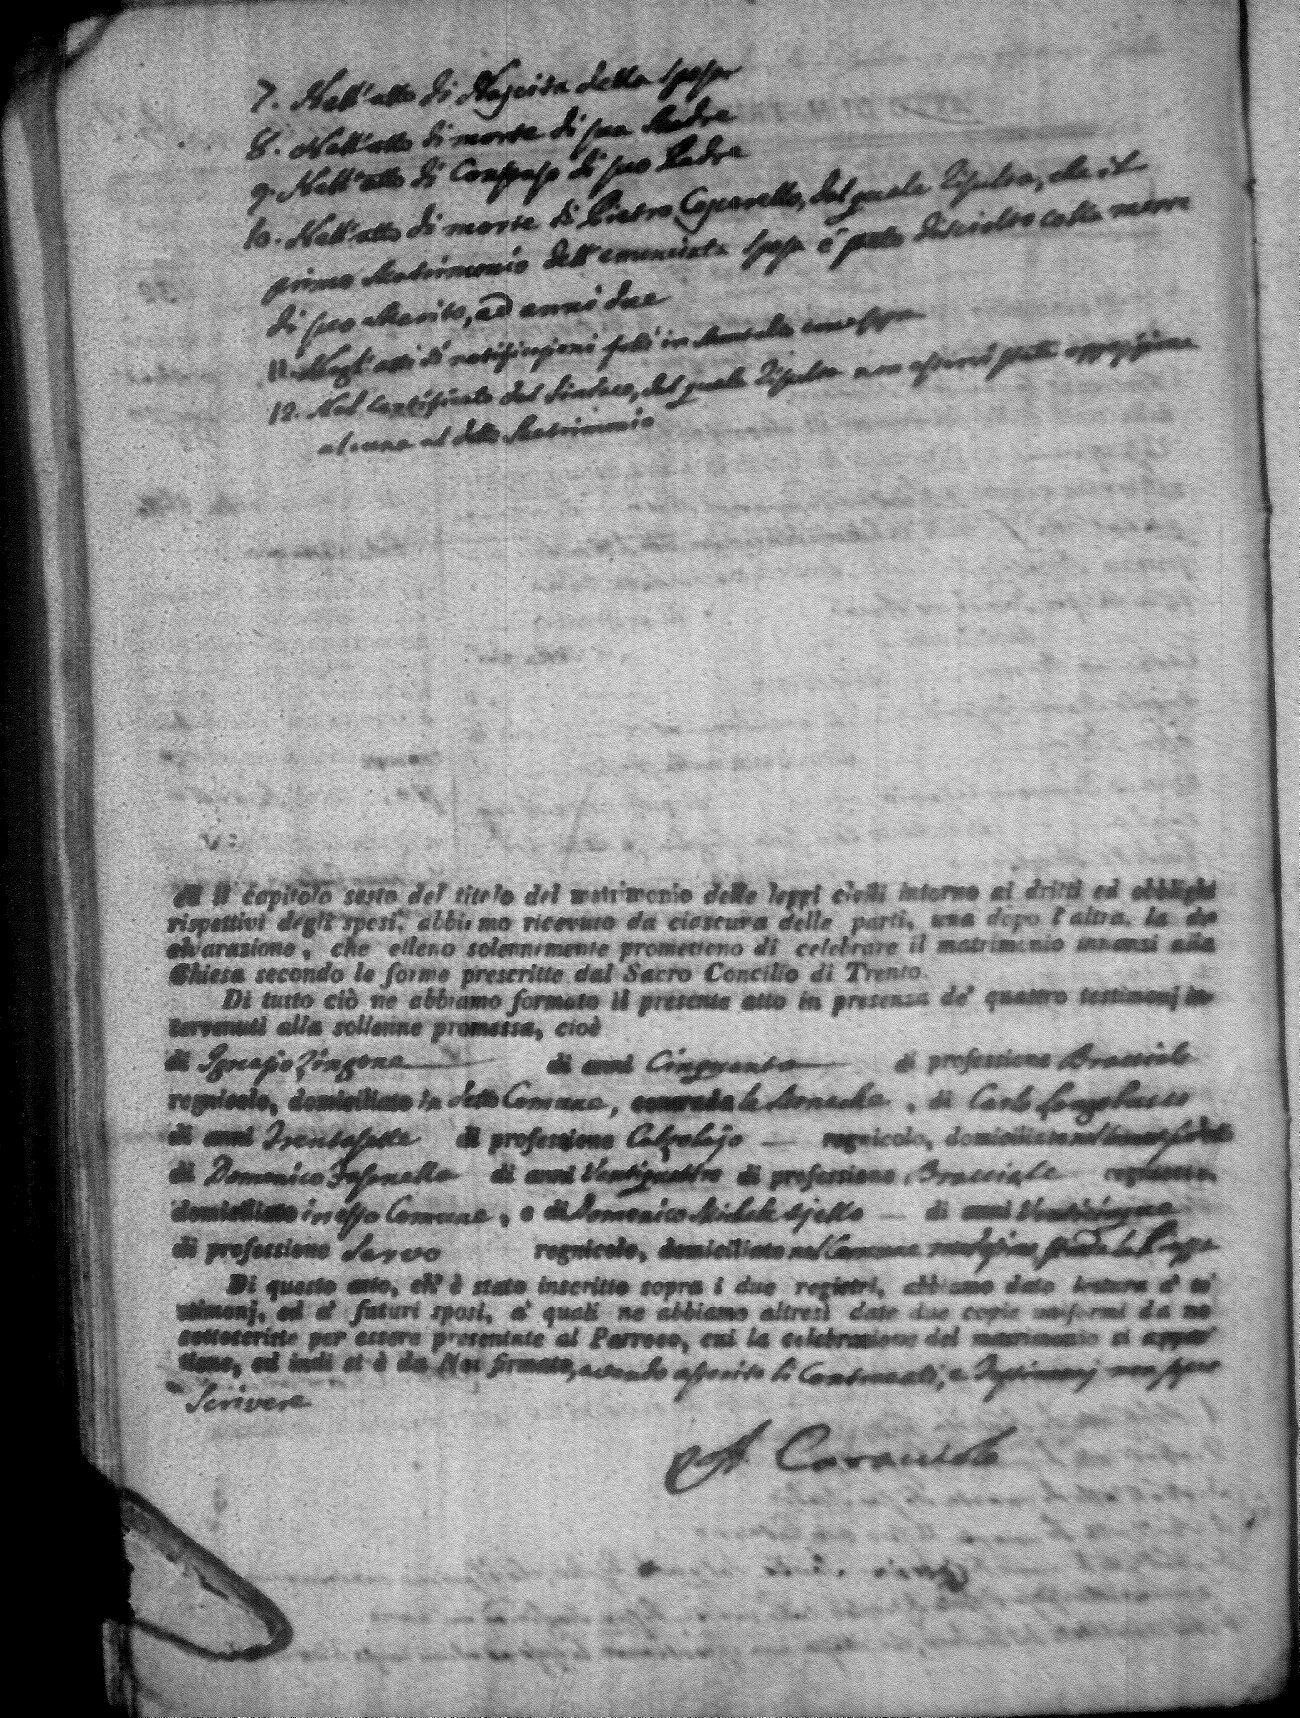 7. Nell'atto di Nascita della sposa
8. Nell'atto di morte di sua Madre
9. Nell'atto di Consenso di suo Padre
10. Nell'atto di morte di Pietro dal quale risulta, che il
primo Matrimonio dell'enunciata sposa è stato disciolto colla morte
di suo Marito, ad anni due
11. Negl'atti di notificazioni fatti in
12. Nel Certificato del Sindaco, dal quale risulta non esservi stata opposizione
alcuna al detto Matrimonio
ed il capitolo sesto del titolo del matrimonio delle leggi civili intorno ai dritti ed obblighi
rispettivi degli sposi, abbiamo ricevuto da ciascuna delle parti, una dopo l'altra, la de
chiarazione, che elleno solennemente promettono di celebrare il matrimonio innanzi alla
Chiesa secondo le forme prescritte dal Sacro Concilio di Trento.
Di tutto ciò ne abbiamo formato il presente atto in presenza de' quattro testimonj in-
tervenuti alla sollenne promessa, cioè
di Ignazio Zingone di anni Cinquanta di professione Bracciale
regnicolo, domiciliato in detto Comune, contrada la , di Carlo Longobucco
di anni Trentasette di professione Calzolajo — regnicolo, domiciliato
di Domenico Fasanella di anni Ventiquattro di professione Bracciale regnicolo,
domiciliato in esso Comune, e di Domenico Michele Ajello — di anni Venticinque
di professione Sarvo regnicolo, domiciliato nel Comune
Di questo atto, ch' è stato inscritto sopra i due registri, abbiamo dato lettura a' te
stimonj, ed a' futuri sposi, a' quali ne abbiamo altresì date due copie uniformi da noi
sottoscritte per essere presentate al Parroco, cui la celebrazione del matrimonio si appar
tiene, ed indi si è da Noi firmato, avendo asserito li Contraenti, e Testimonj non saper
Scrivere
A Caracciolo